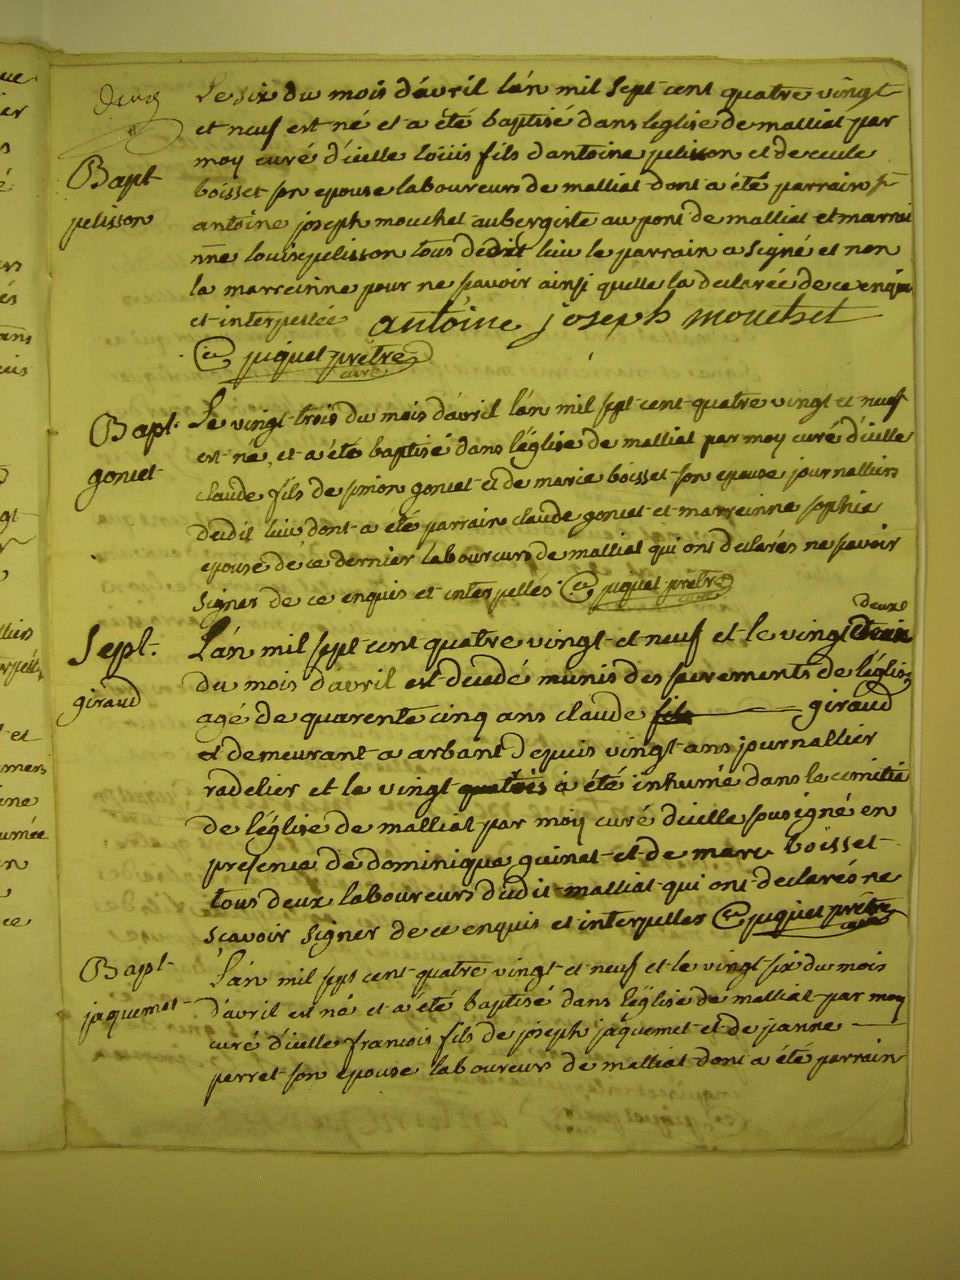 deux
Bapt
pelisson
Le six du mois d'avril l'an mil sept cent quatre vingt
et neuf est né et a été baptisé dans l'église de malliat par
moy curé d'icelle loüis fils d'antoine pelisson et de cecile
boisset son epouse laboureurs de malliat dont a été parrain Sr
antoine joseph mouchet aubergiste au pont de malliat et marrai
nne louise pelisson tous dedit lieu le parrain a signé et non
la marreinne pour ne savoir ainsi quelle la declarée de ce enquise
et interpellée antoine joseph mouchet
puquet prêtre
curé
Bapt.
goniet
Le vingt trois du mois d'avril l'an mil sept cent quatre vingt et neuf
est né, et a été baptisé dans l'église de malliat par moy curé d'icelle
claude fils de simon goniet et de marie boisset son epouse journalliers
dudit lieu dont a été parrain claude goniet et marreinne sophie
epouse de ce dernier laboureurs de malliat qui ont declarés ne savoir
signer de ce enquis et interpellés puquet prêtre
curé
Sept.
giraud
deuxe
L'an mil sept cent quatre vingt et neuf et le vingt
du mois d'avril est decedé munis des sacrements de l'église
agé de quarente cinq ans claude fils giraud
et demeurant a arbant depuis vingt ans journallier
radelier et le vingt quatres a été inhumé dans le cimitie
de l'église de malliat par moy curé d'icelle soussigné en
presence de dominique guinet et de marc boisset
tous deux laboureurs dudit malliat qui ont declarés ne
scavoir signer de ce enquis et interpelles puquet prêtre
curé
Bapt
jaquemet
L'an mil sept cent quatre vingt et neuf et le vingt six du mois
d'avril est né et a été baptisé dans l'église de malliat par moy
curé d'icelle francois fils de joseph jaquemet et de janne
perret son epouse laboureurs de malliat dont a été parrain